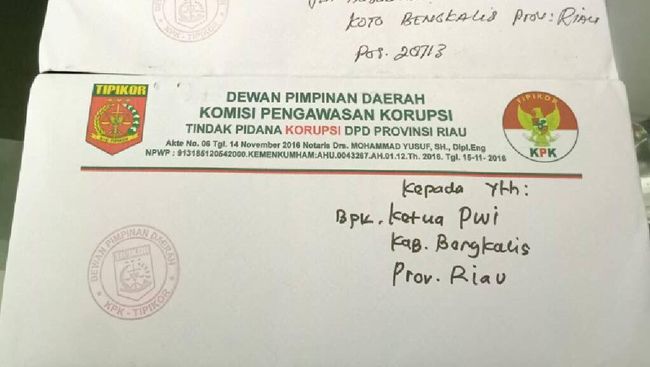 KOTO BENGKALIS PROV: RIAU
POS. 28713
TIPIKOR
DEWAN PIMPINAN DAERAH
KOMISI PENGAWASAN KORUPSI
TINDAK PIDANA KORUPSI DPD PROVINSI RIAU
Akte No. 06 Tgl. 14 November 2016 Notaris Drs. MOHAMMAD YUSUF, SH., Dipl.Eng
NPWP : 913185120542000.KEMENKUMHAM:AHU.0043267.AH.01.12.Th. 2016. Tgl. 15-11- 2016
TIPIKOR
KPK
Kepada Yth:
BPK. Ketua PWI
Kab. Bengkalis
Prov. Riau
DEWAN PIMPINAN DAERAH
KPK - TIPIKOR
KPK - TIPIKOR